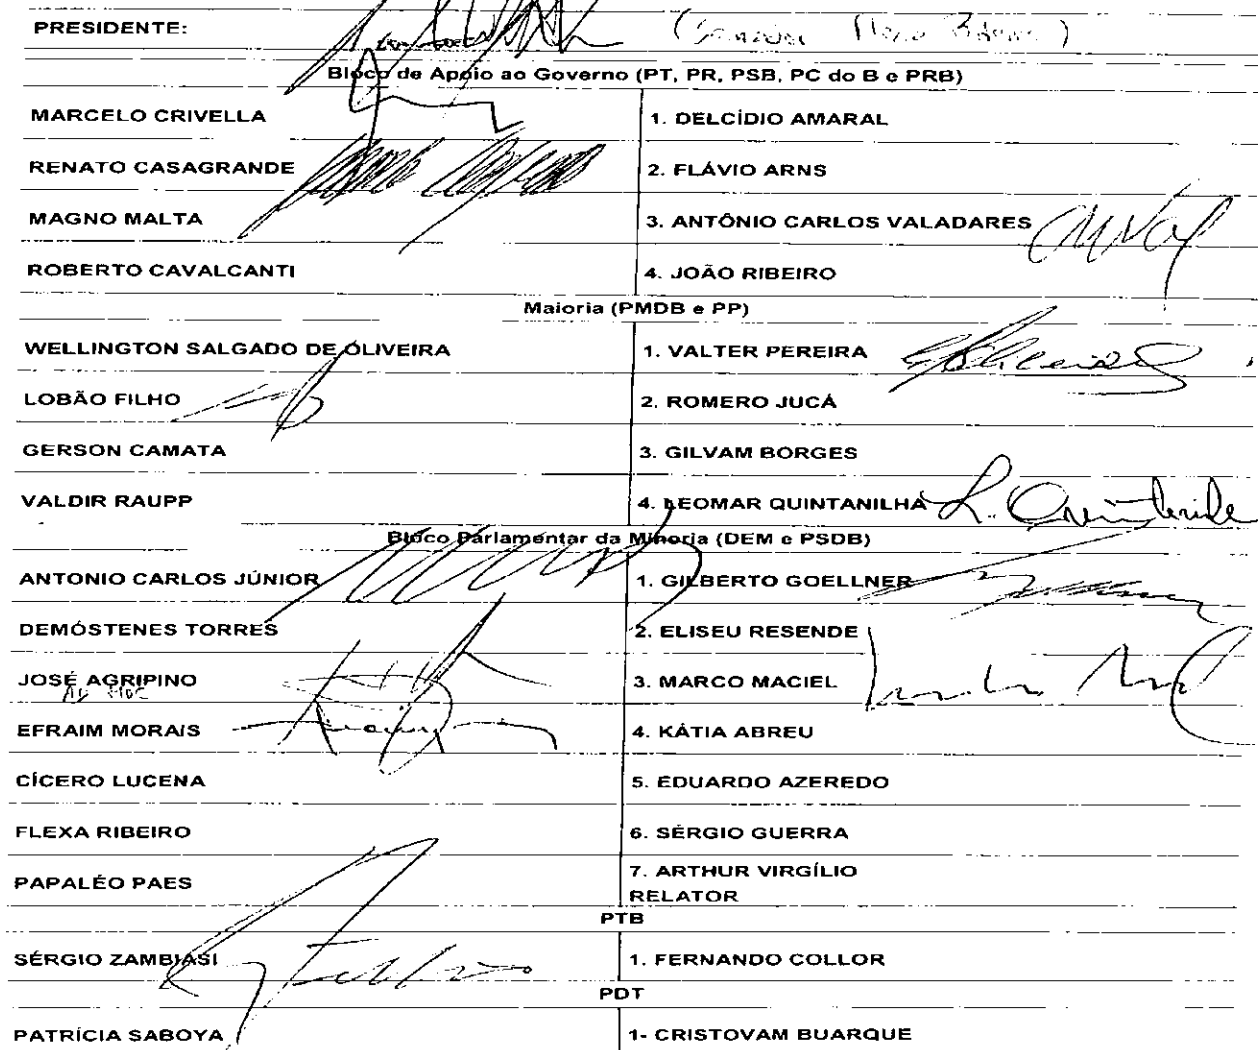 PRESIDENTE:
Bloco de Apoio ao Governo (PT, PR, PSB, PC do B e PRB)
MARCELO CRIVELLA 1. DELCÍDIO AMARAL
RENATO CASAGRANDE 2. FLÁVIO ARNS
MAGNO MALTA 3. ANTÔNIO CARLOS VALADARES
ROBERTO CAVALCANTI 4. JOÃO RIBEIRO
Maioria (PMDB e PP)
WELLINGTON SALGADO DE OLIVEIRA 1. VALTER PEREIRA
LOBÃO FILHO 2. ROMERO JUCÁ
GERSON CAMATA 3. GILVAM BORGES
VALDIR RAUPP 4. LEOMAR QUINTANILHA
Bloco Parlamentar da Minoria (DEM e PSDB)
ANTONIO CARLOS JÚNIOR 1. GILBERTO GOELLNER
DEMÓSTENES TORRES 2. ELISEU RESENDE
JOSÉ AGRIPINO 3. MARCO MACIEL
EFRAIM MORAIS 4. KÁTIA ABREU
CÍCERO LUCENA 5. EDUARDO AZEREDO
FLEXA RIBEIRO 6. SÉRGIO GUERRA
PAPALÉO PAES 7. ARTHUR VIRGÍLIO
RELATOR
PTB
SÉRGIO ZAMBIASI 1. FERNANDO COLLOR
PDT
PATRÍCIA SABOYA 1- CRISTOVAM BUARQUE